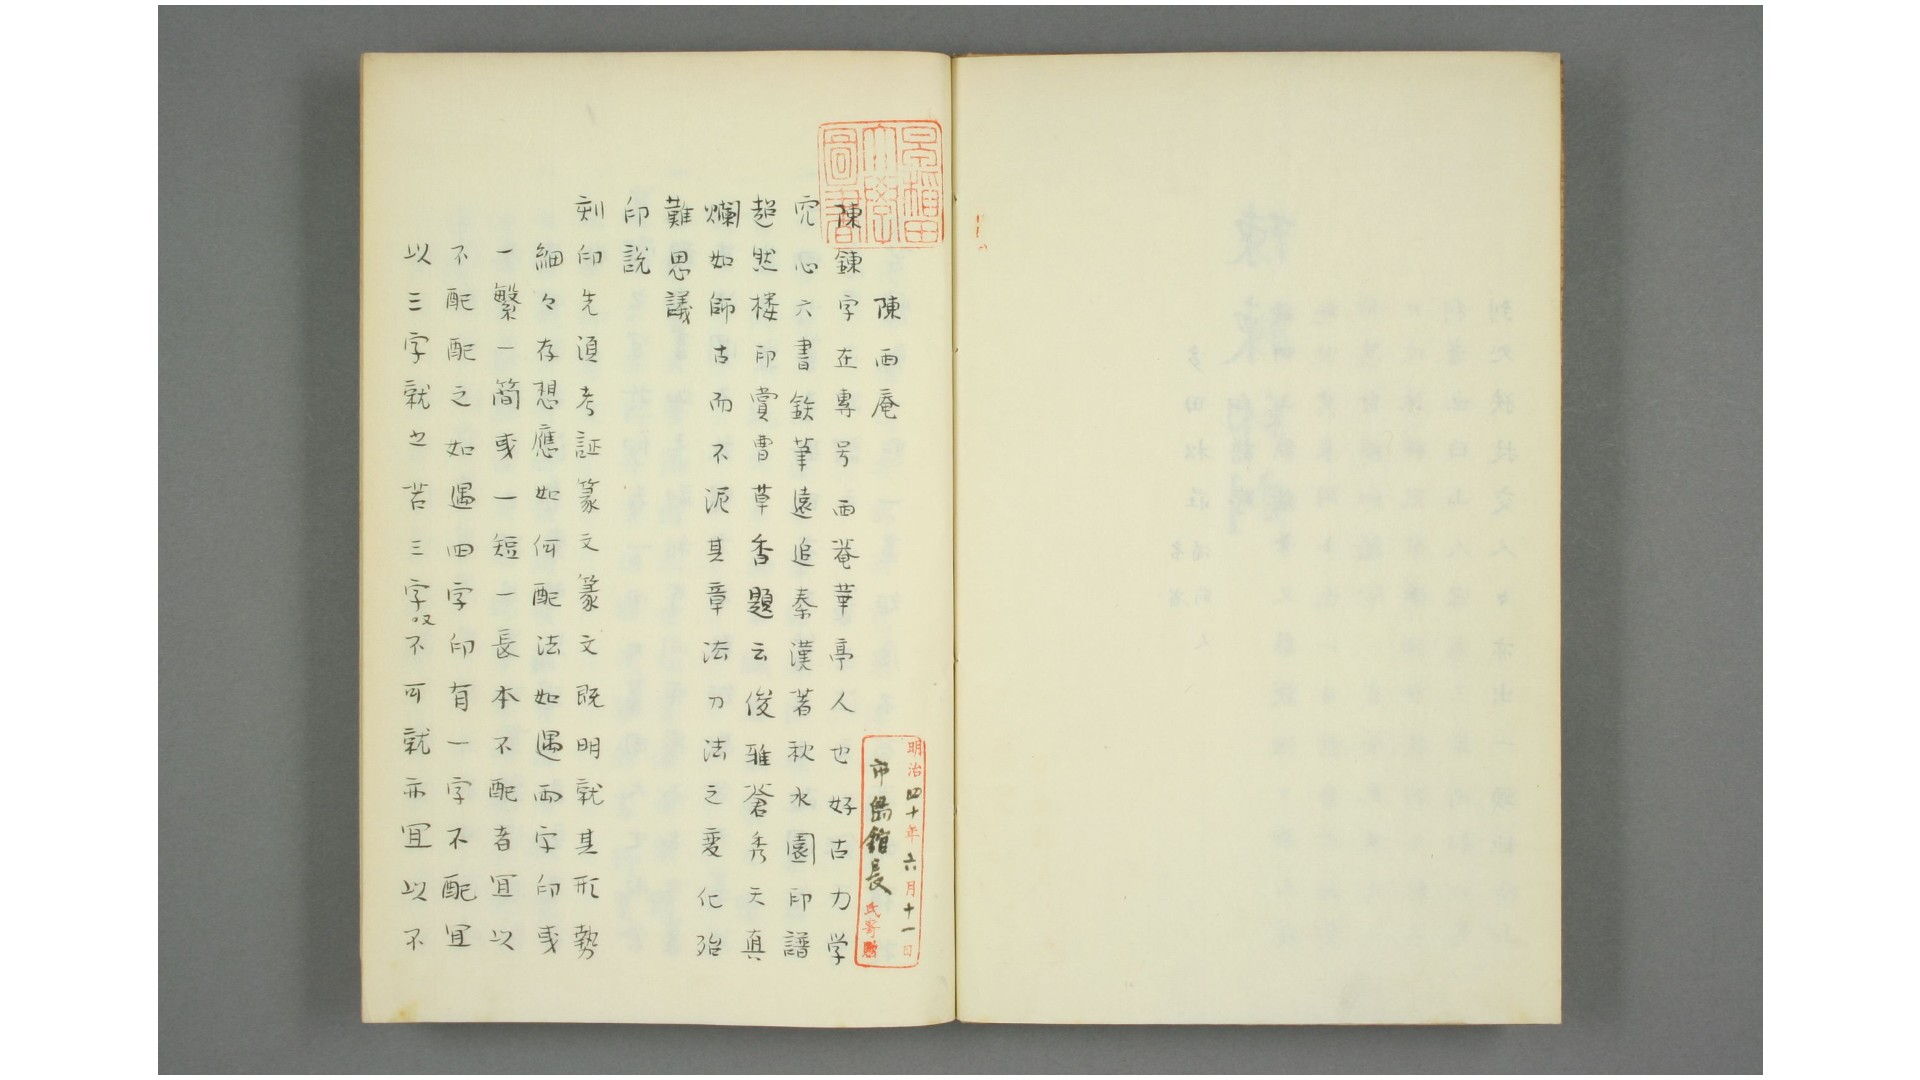 早稲田
大學
圖書
明治四十年六月十一日
市島館長氏寄贈
陳西庵
陳錬字在專号西菴華亭人也好古力学
究心六書鉄筆遠追秦漢著秋水園印譜
超然楼印賞曹草香題云俊雅蒼秀天真
爛如師古而不泥其章法刀法之変化殆
難思議
印説
刻印先須考証篆文篆文既明就其形勢
細々存想應如何配法如遇両字印或
一繁一簡或一短一長本不配者宜以
不配配之如遇四字印有一字不配宜
以三字就之若三字又不可就亦宜以不